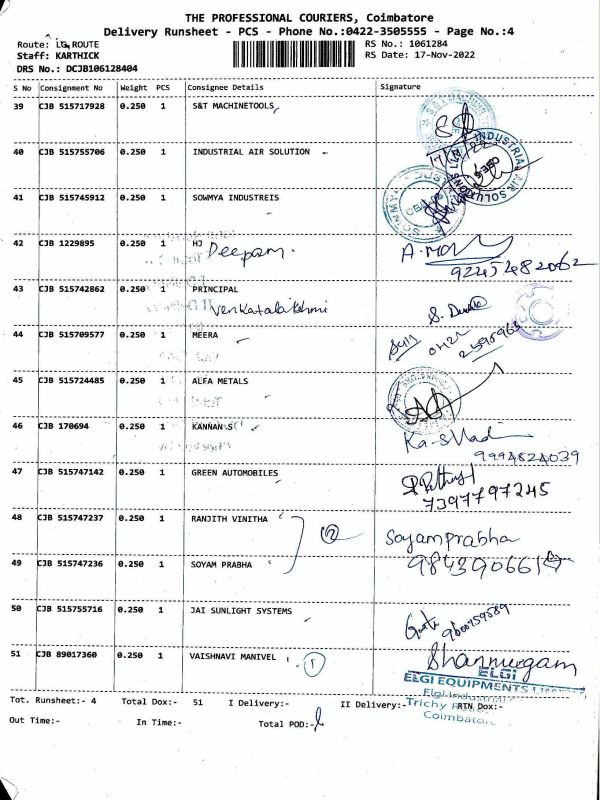 THE PROFESSIONAL COURIERS, Coimbatore
Delivery Runsheet - PCS - Phone No.:0422-3505555 - Page No.:4
Route: LG ROUTE
RS No.: 1061284
Staff: KARTHICK
RS Date: 17-Nov-2022
DRS No.: DCJB106128404
S No Consignment No Weight PCS Consignee Details Signature
39 CJB 515717928 0.250 1 S&T MACHINETOOLS
40 CJB 515755706 0.250 1 INDUSTRIAL AIR SOLUTION
INDUSTRIAL AIR SOLUTIONS
41 CJB 515745912 0.250 1 SOWMYA INDUSTREIS
42 CJB 1229895 0.250 1 HJ
Deepam.
9245482062
43 CJB 515742862 0.250 1 PRINCIPAL
Venkatalakshmi
44 CJB 515709577 0.250 1 MEERA
0422
2595965
45 CJB 515724485 0.250 1 ALFA METALS
46 CJB 170694 0.250 1 KANNAN S
9994824039
47 CJB 515747142 0.250 1 GREEN AUTOMOBILES
7397797245
48 CJB 515747237 0.250 1 RANJITH VINITHA
2
Soyamprabha
49 CJB 515747236 0.250 1 SOYAM PRABHA
50 CJB 515755716 0.250 1 JAI SUNLIGHT SYSTEMS
51 CJB 89017360 0.250 1 VAISHNAVI MANIVEL
1
Shanmugam
ELGI
ELGI EQUIPMENTS LIMITED
Elgi Industrial
Trichy
Coimbatore
Tot. Runsheet:- 4 Total Dox:- 51 I Delivery:- II Delivery:- RTN Dox:-
Out Time:- In Time:- Total POD:-